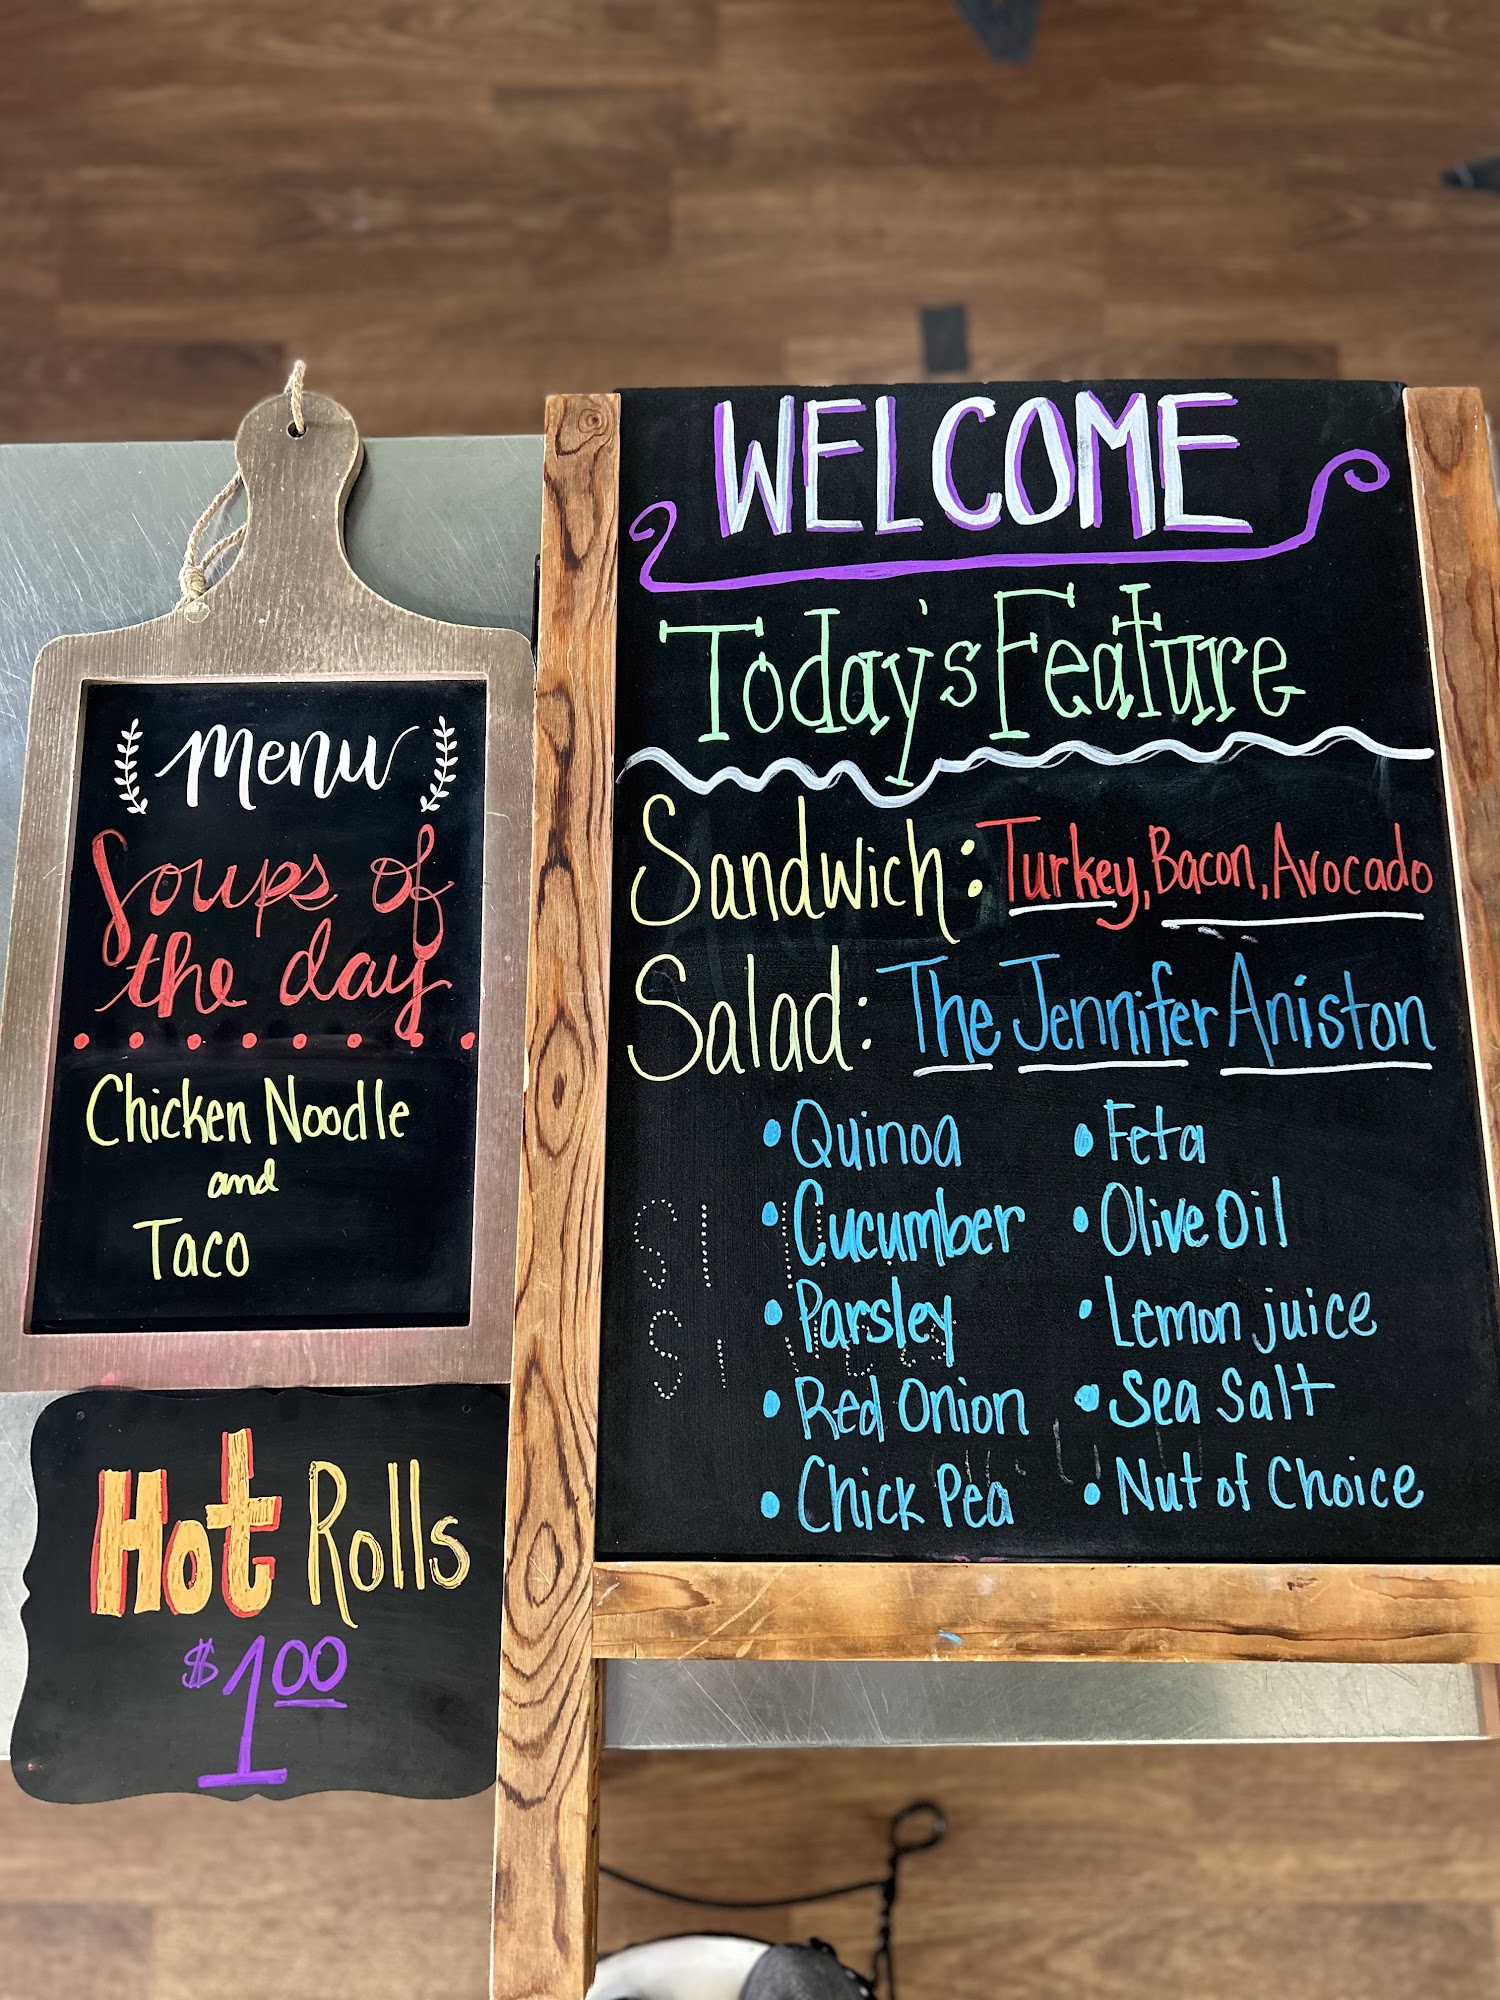 Menu
Soups of
the day
Chicken Noodle
and
Taco
Hot Rolls
$1.00
WELCOME
Today's Feature
Sandwich: Turkey, Bacon, Avocado
Salad: The Jennifer Aniston
• Quinoa
• Cucumber
• Parsley
• Red Onion
• Chick Pea
• Feta
• Olive Oil
• Lemon juice
• Sea Salt
• Nut of Choice